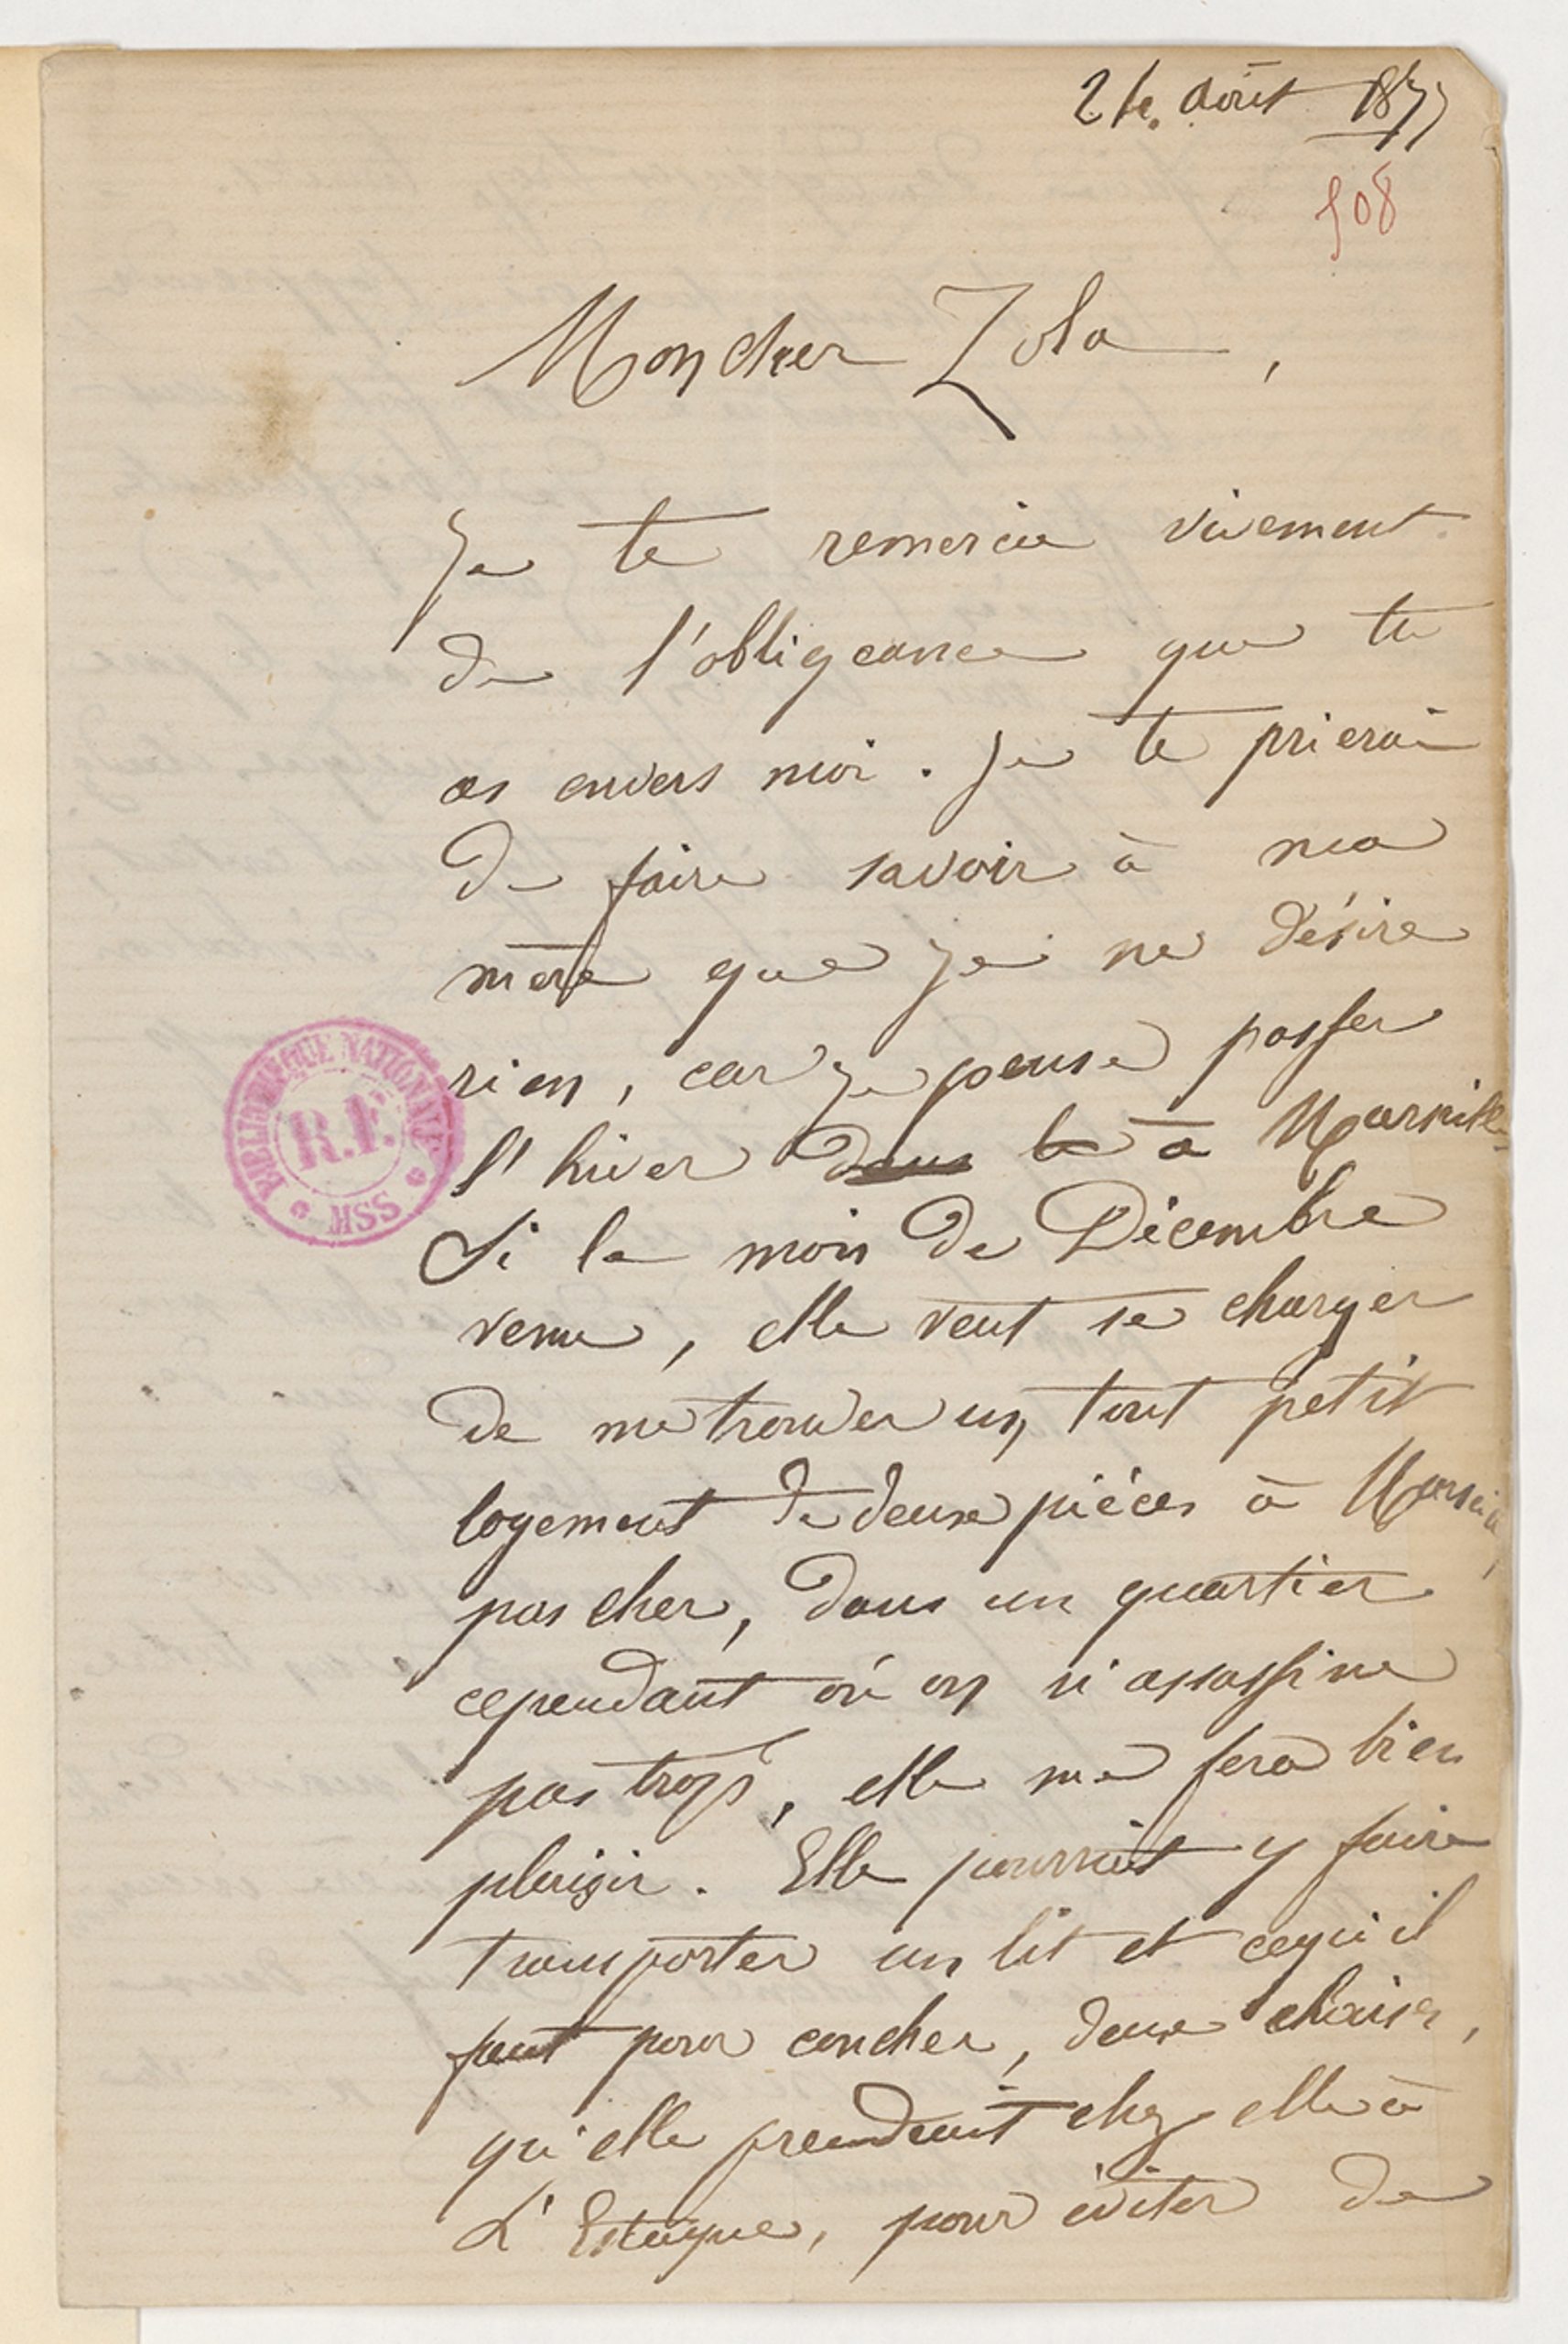 24. août 1877
508
Mon cher Zola,
Je te remercie vivement
de l'obligeance que tu
as envers moi. Je te prierai
de faire savoir à ma
mère que je ne désire
rien, car je pense passer
l'hiver dans le à Marseille
Si le mois de Décembre
venu, elle veut se charger
de me trouver un tout petit
logement de deux pièces à Marseille,
pas cher, dans un quartier
cependant où on n'assassine
pas trop, elle me fera bien
plaisir. Elle pourrait y faire
transporter un lit et ce qu'il
faut pour coucher, deux chaises,
qu'elle prendrait chez elle à
L'Estaque, pour éviter de
BIBLIOTHÈQUE NATIONALE
R.F.
MSS